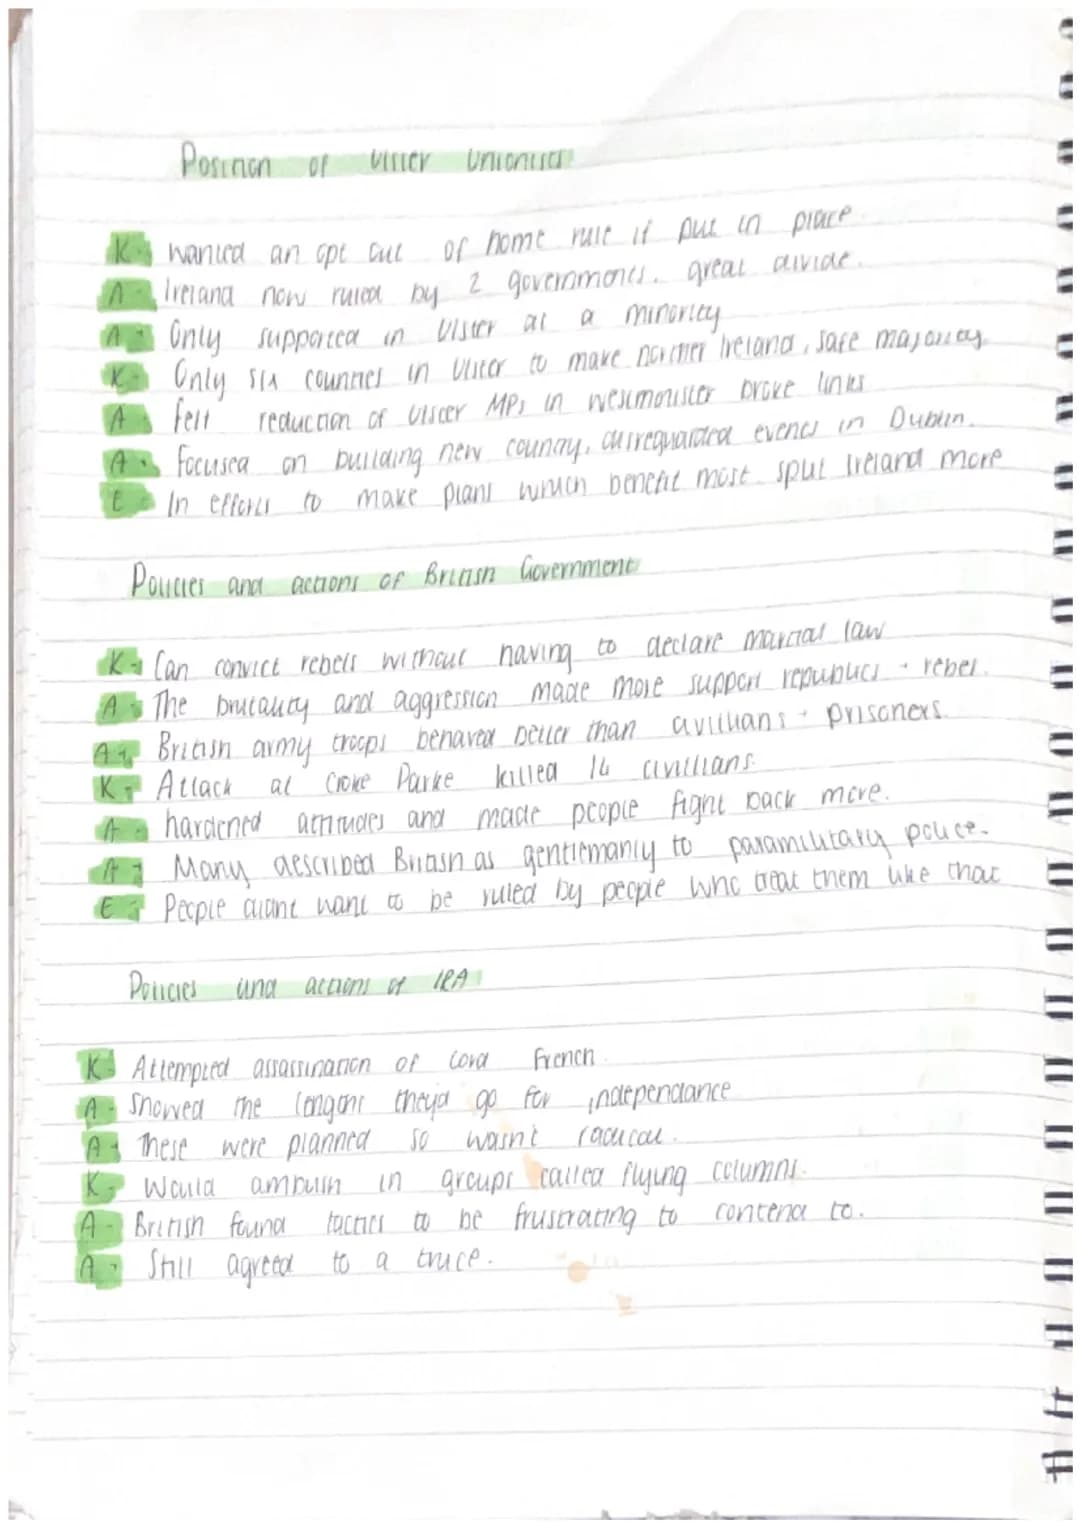 Position of Ulster Unionists
K - Wanted an opt out of home rule if put in place.
A - Ireland now ruled by 2 governments. great divide.
A - Only supported in Ulster at a minority
K - Only six counties in Ulster to make norther Ireland, safe majority.
A felt reduction of Ulster MPs in westminister broke links
A - Focused on building new country, disreguarded events in Dublin.
E - In efforts to make plans which benefit most split Ireland more
Policies and actions of British Government
K - Can convict rebels without having to declare marcial law
A - The brutality and aggression made more support republics + rebel.
A - British army troops behaved better than civilians + prisoners.
K - Attack at Croke Parke killed 14 civillians.
A - hardened attitudes and made people fight back more.
A - Many described British as gentlemanly to paramilitary police.
E - People didnt want to be ruled by people who treat them like that
Policies and actions of IRA
K - Attempted assassination of Lord French.
A - Showed the they'd go for independance
A - These were planned so wasn't radical.
K - Would ambush in groups called flying columns.
A - British found tactics to be frustrating to contend to.
A - Still agreed to a truce.